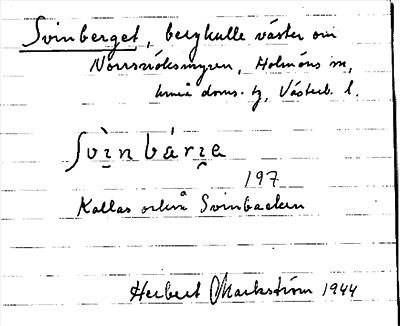 Svinberget, bergkulle väster om
Norrsvåksmyren, Holmöns sn,
Umeå doms. tg, Västerb. l.
Svı̀n bárɪ̯e
197
Kallas också Svinbacken
Herbert Markström 1944